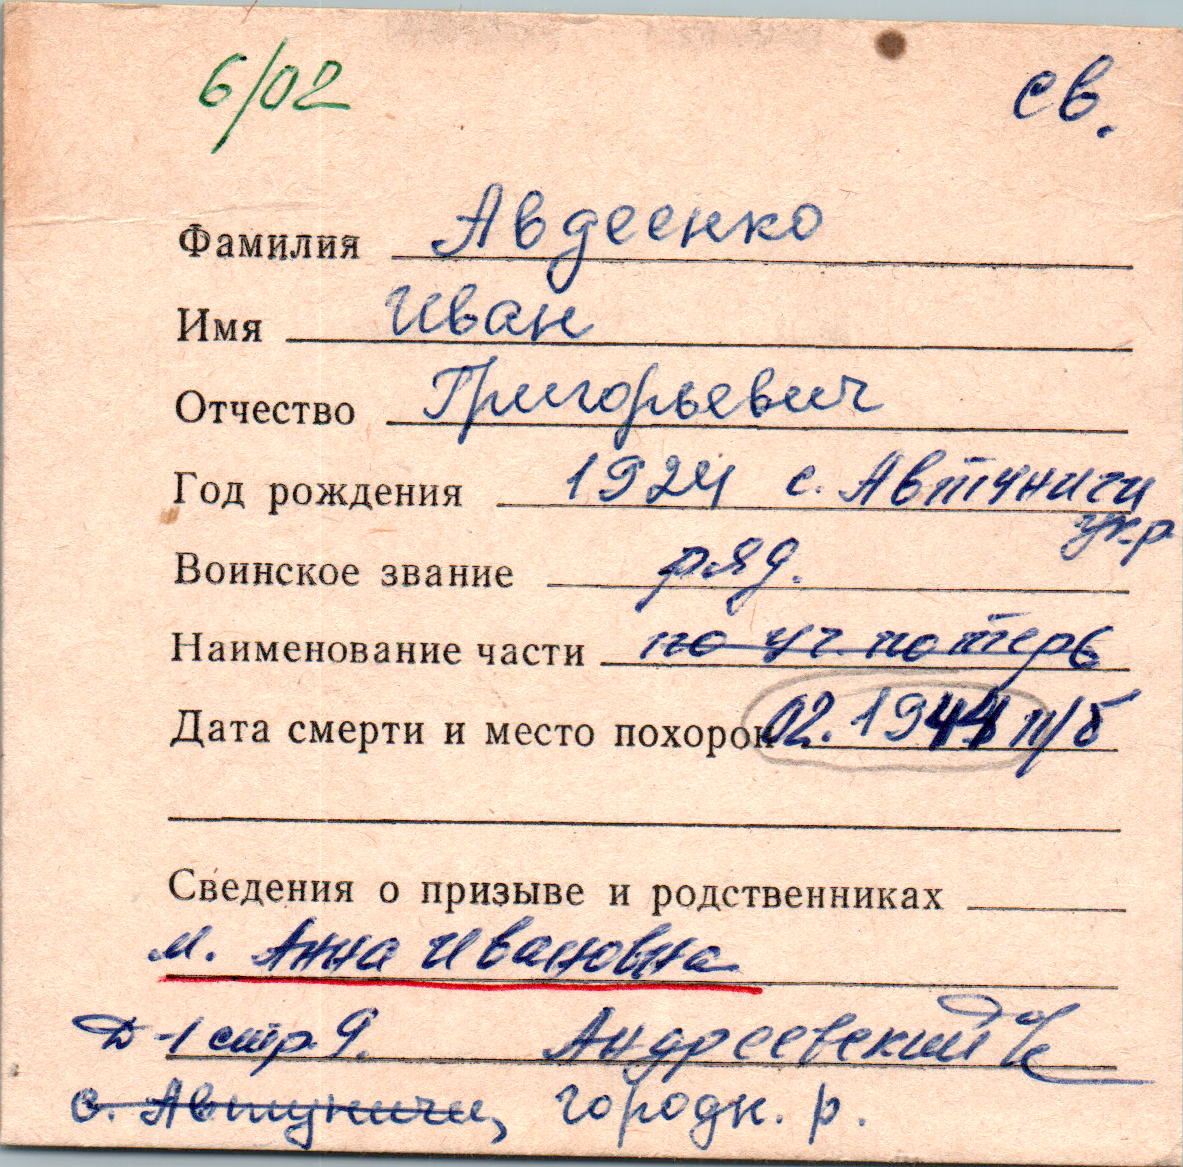 6/02 св.
Фамилия Авдеенко
Имя Иван
Отчество Григорьевич
Год рождения 1924 с. Автуничи
укр
Воинское звание ряд.
Наименование части по уч. потерь
Дата смерти и место похорон 02.1944 п/б
Сведения о призыве и родственниках
м. Анна Ивановна
Д-1 стр 9. Андреевский
с. Автуничи, городк. р.